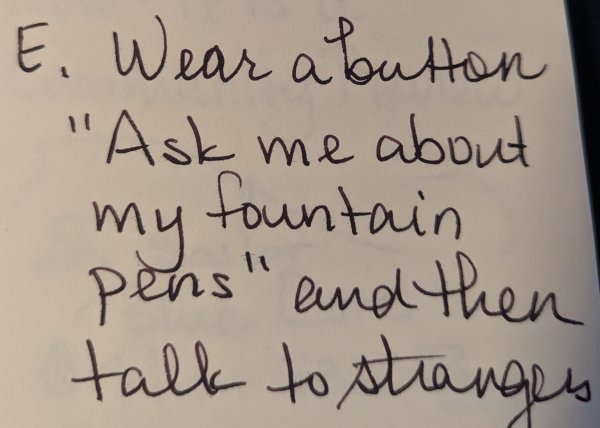 E. Wear a button
"Ask me about
my fountain
pens" and then
talk to strangers